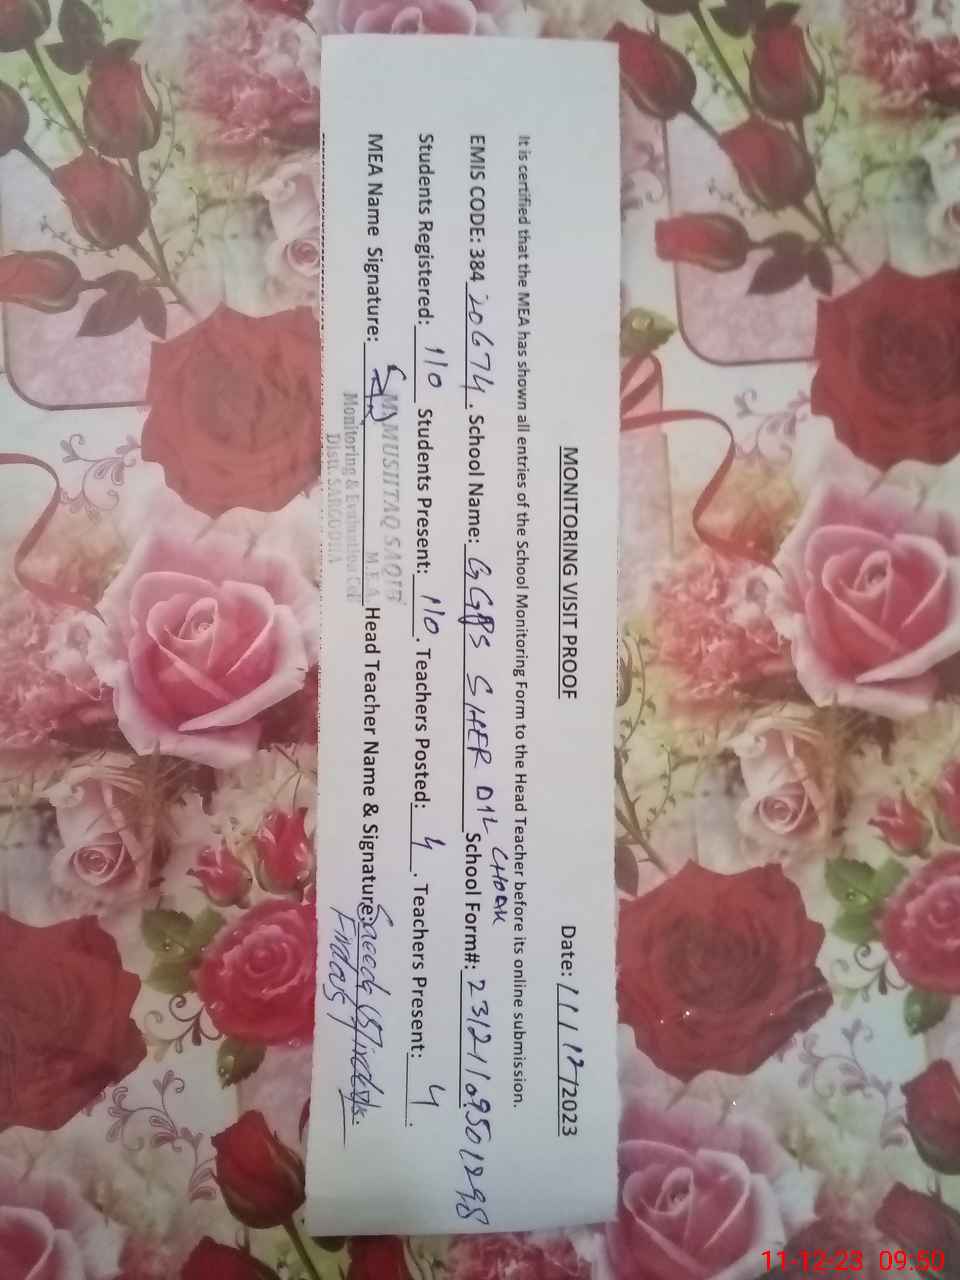 MONITORING VISIT PROOF
Date: 11/12/2023
It is certified that the MEA has shown all entries of the School Monitoring Form to the Head Teacher before its online submission.
EMIS CODE: 384 20674. School Name: GGPS SHER DIL CHOAK School Form#: 23121109501298
Students Registered: 110 Students Present: 110. Teachers Posted: 4. Teachers Present: 4.
MEA Name Signature: Head Teacher Name & Signature: Saeeda
MUSHTAQ SAQIB
M.E.A
Monitoring & Evaluation Cell
Distt. SARGODHA
11-12-23 09:50